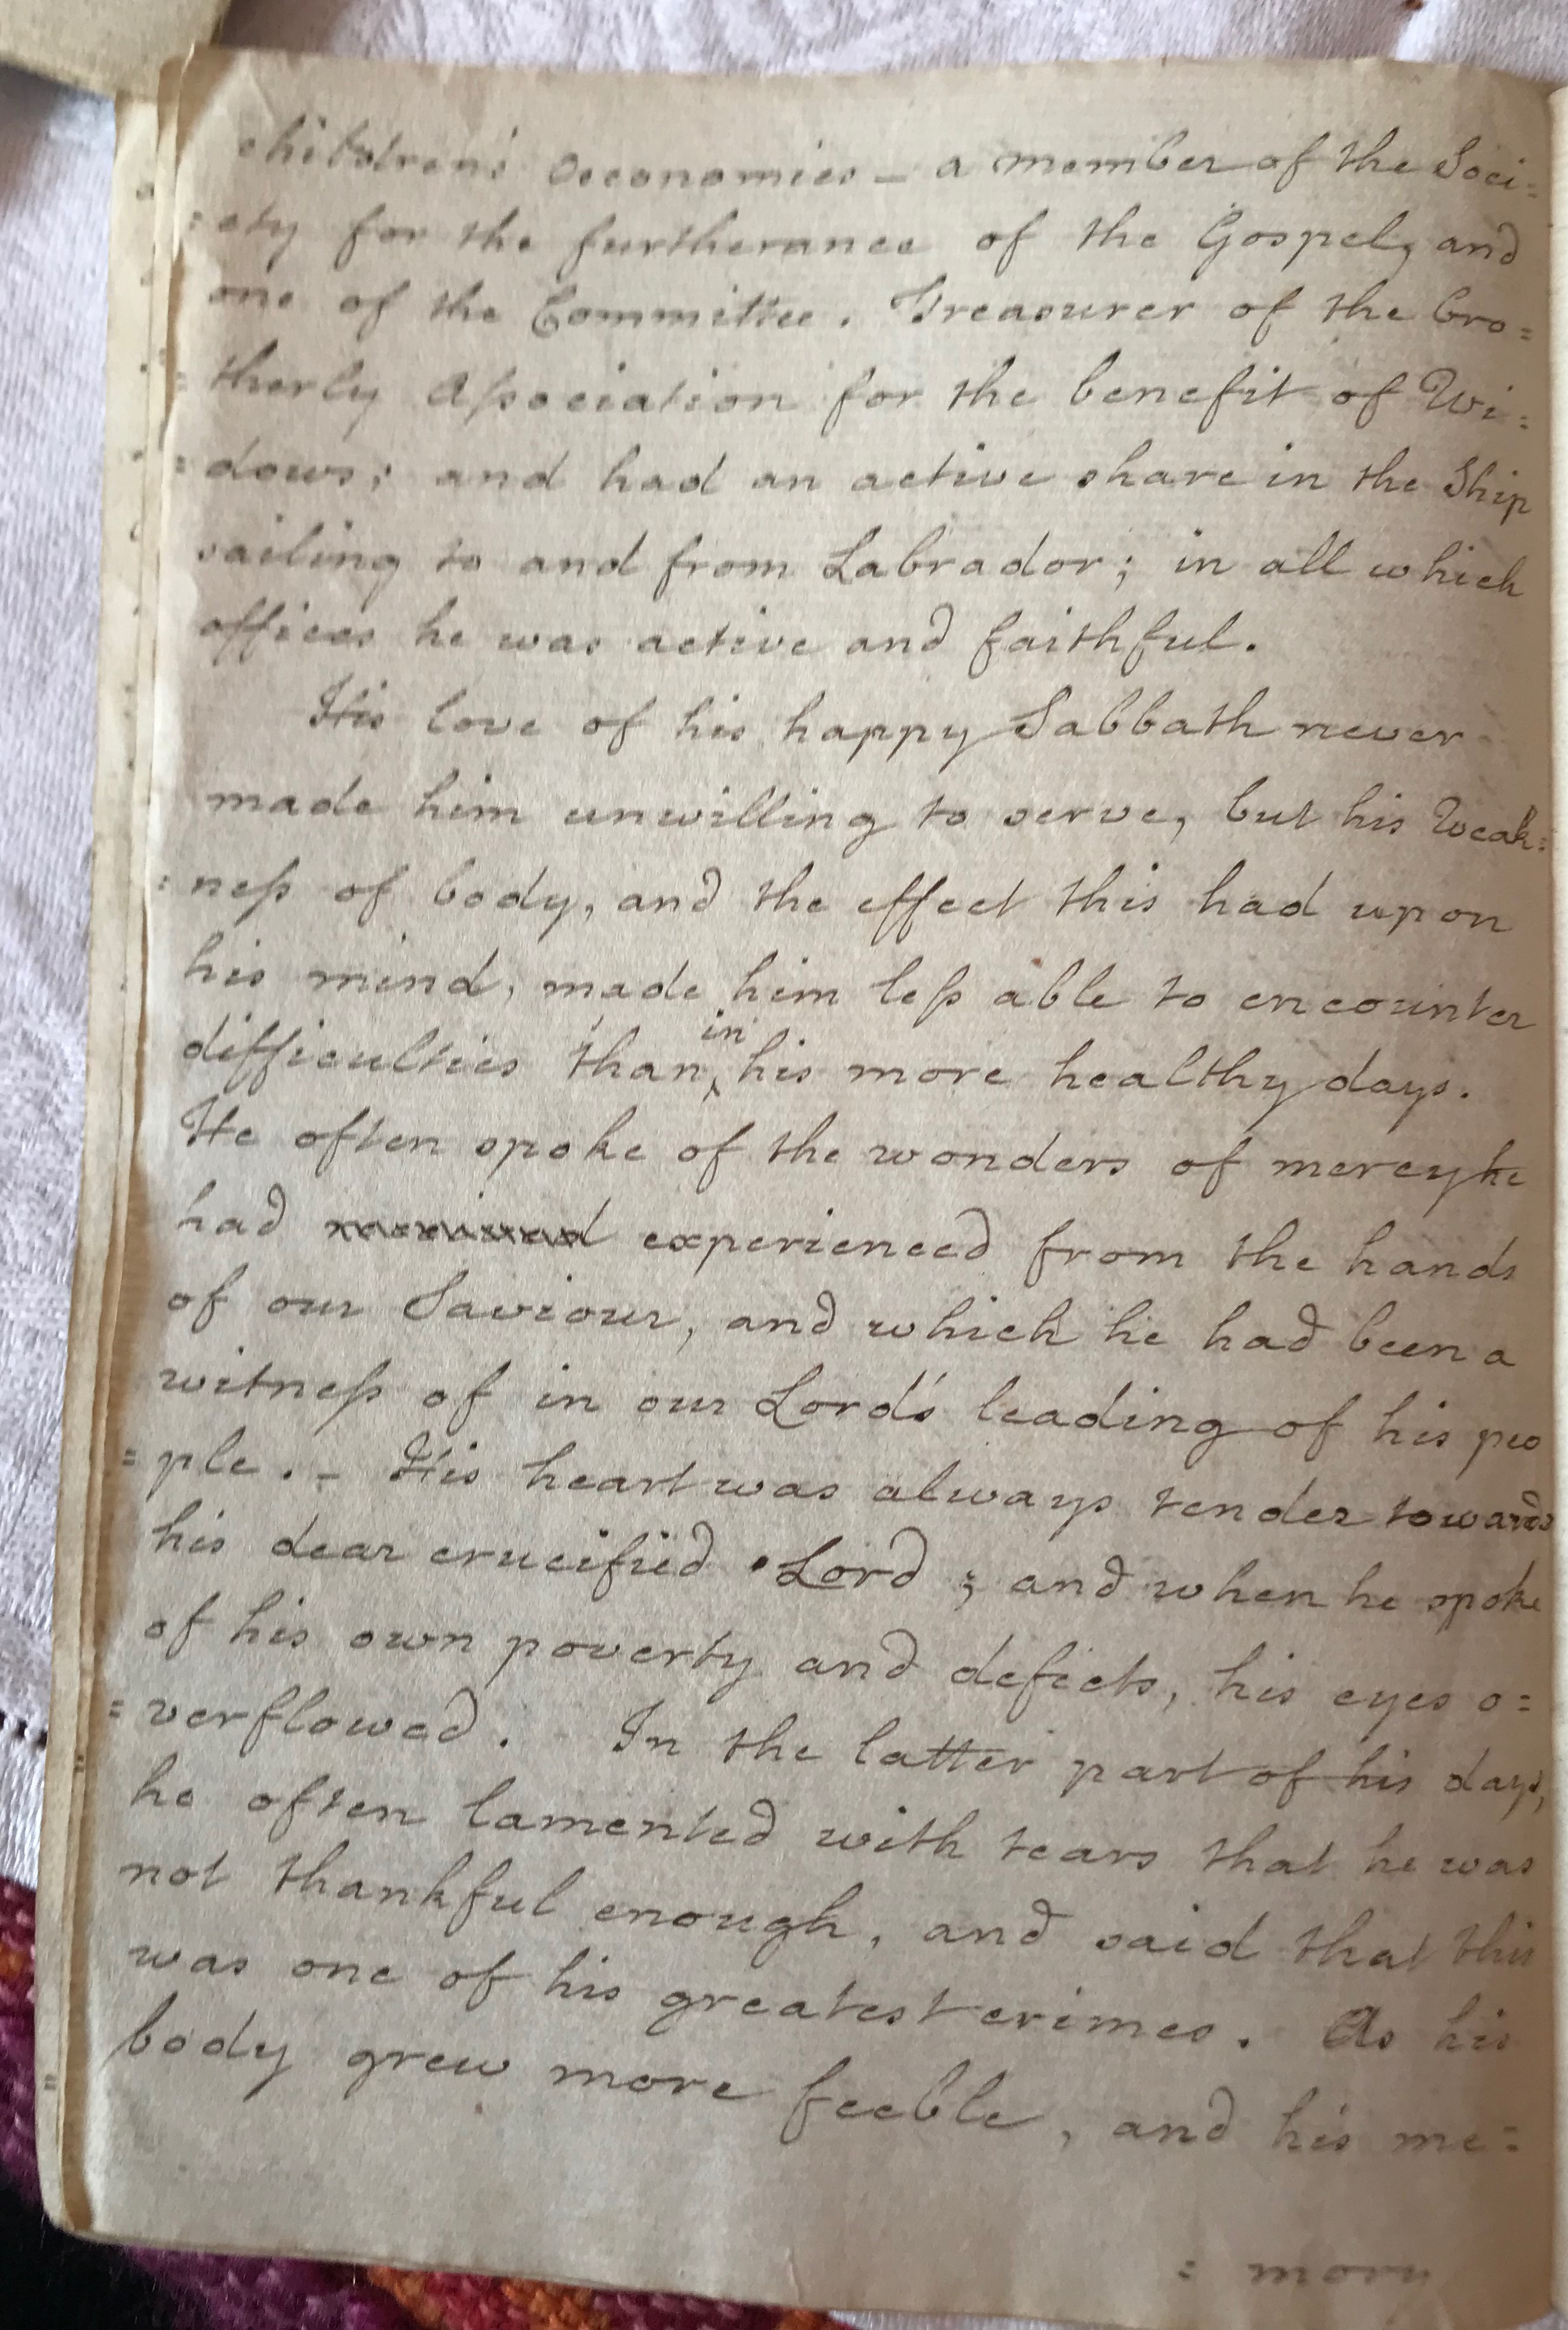 children's Oeconomies – a member of the Soci=
=ety for the furtherance of the Gospel, and
one of the Committee. Treasurer of the bro=
=therly Aſsociation for the benefit of Wi=
=dows; and had an active share in the Ship
sailing to and from Labrador; in all which
offices he was active and faithful.
His love of his happy Sabbath never
made him unwilling to serve, but his Weak=
=neſs of body, and the effect this had upon
his mind, made him leſs able to encounter
difficulties than in his more healthy days.
He often spoke of the wonders of mercy he
had experienced from the hands
of our Saviour, and which he had been a
witneſs of in our Lord's leading of his peo
=ple. – His heart was always tender towards
his dear crucified Lord; and when he spoke
of his own poverty and defects, his eyes o=
=verflowed. In the latter part of his days,
he often lamented with tears that he was
not thankful enough, and said that this
was one of his greatest crimes. As his
body grew more feeble, and his me=
=mory